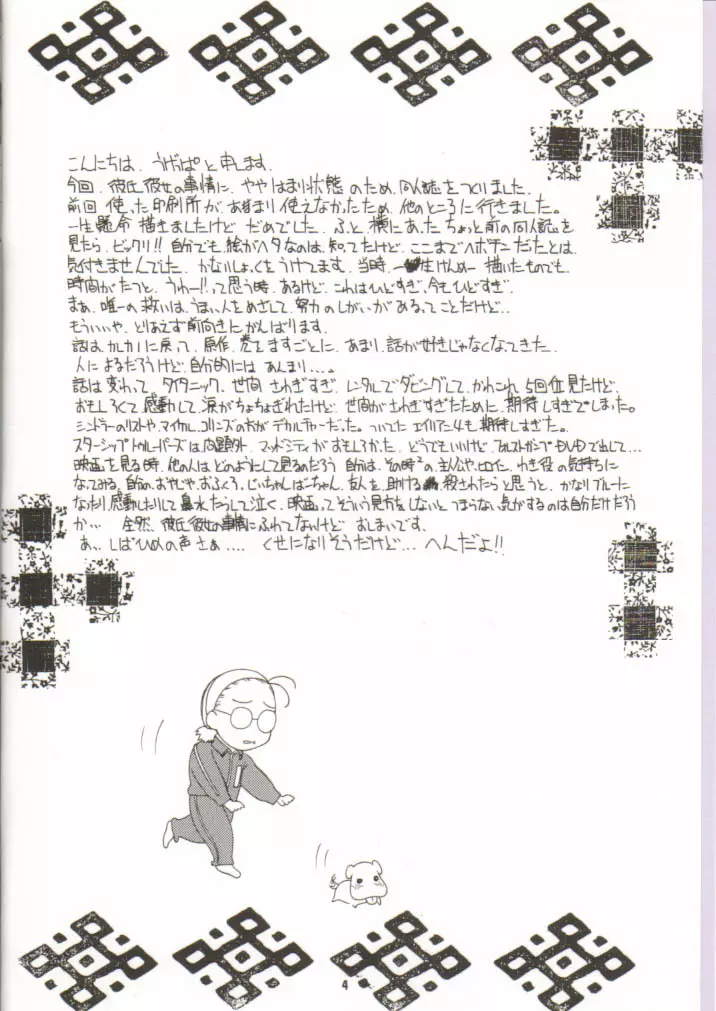 こんにちは、うげっぱと申します。
今回、彼氏彼女の事情に、ややはまり状態のため、同人誌をつくりました。
前回使った印刷所が、あまり使えなかったため、他のところに行きました。
一生懸命描きましたけど、だめでした。ふと、横にあったちょっと前の同人誌を
見たら、ビックリ!!自分でも絵がヘタなのは、知ってたけど、ここまでヘボチンだったとは、
気付きませんでした。かなりしょっくをうけてます。当時、一生けんめー描いたものでも、
時間がたつと、うわー!!って思う時、あるけど、これはひどすぎ、今もひどすぎ。
まあ、唯一の救いは、うまい人をめざして、努力のしがいがあるってことだけど…
もういいや、とりあえず前向きにがんばります。
話は、カレカノに戻って、原作、巻をますごとに、あまり、話が好きじゃなくなってきた。
人によるだろうけど、自分的には、あんまり…。
話は変わって、タイタニック、世間さわぎすぎ、レンタルでダビングして、かれこれ5回位見たけど、
おもしろくて感動して、涙がちょちょぎれたけど、世間がさわぎすぎたために、期待しすぎてしまった。
シンドラーのリストや、マイケル・コリンズの方がデカルチャーだった。ついでに、エイリアン4も期待しすぎた。
スターシップ・トゥルーパーズは、問題外、マッドシティがおもしろかった。どうでもいいけど、フォレストガンプDVDで出して…
映画を見る時、他の人は、どのようにして見るのだろう、自分は、その時々の主人公や、ヒロイン、わき役の気持ちに
なってみる。自分の、おやじや、おふくろ、じいちゃん、ばーちゃん、友人を、助ける、殺されたらと思うと、かなりブルーに
なったり、感動したりして、鼻水たらして泣く、映画ってそういう見方をしないと、つまらない気がするのは自分だけだろう
か… 全然、彼氏彼女の事情にふれてないけど、おしまいです。
あっ、しばひめの声さぁ… くせになりそうだけど… へんだよ!!
4